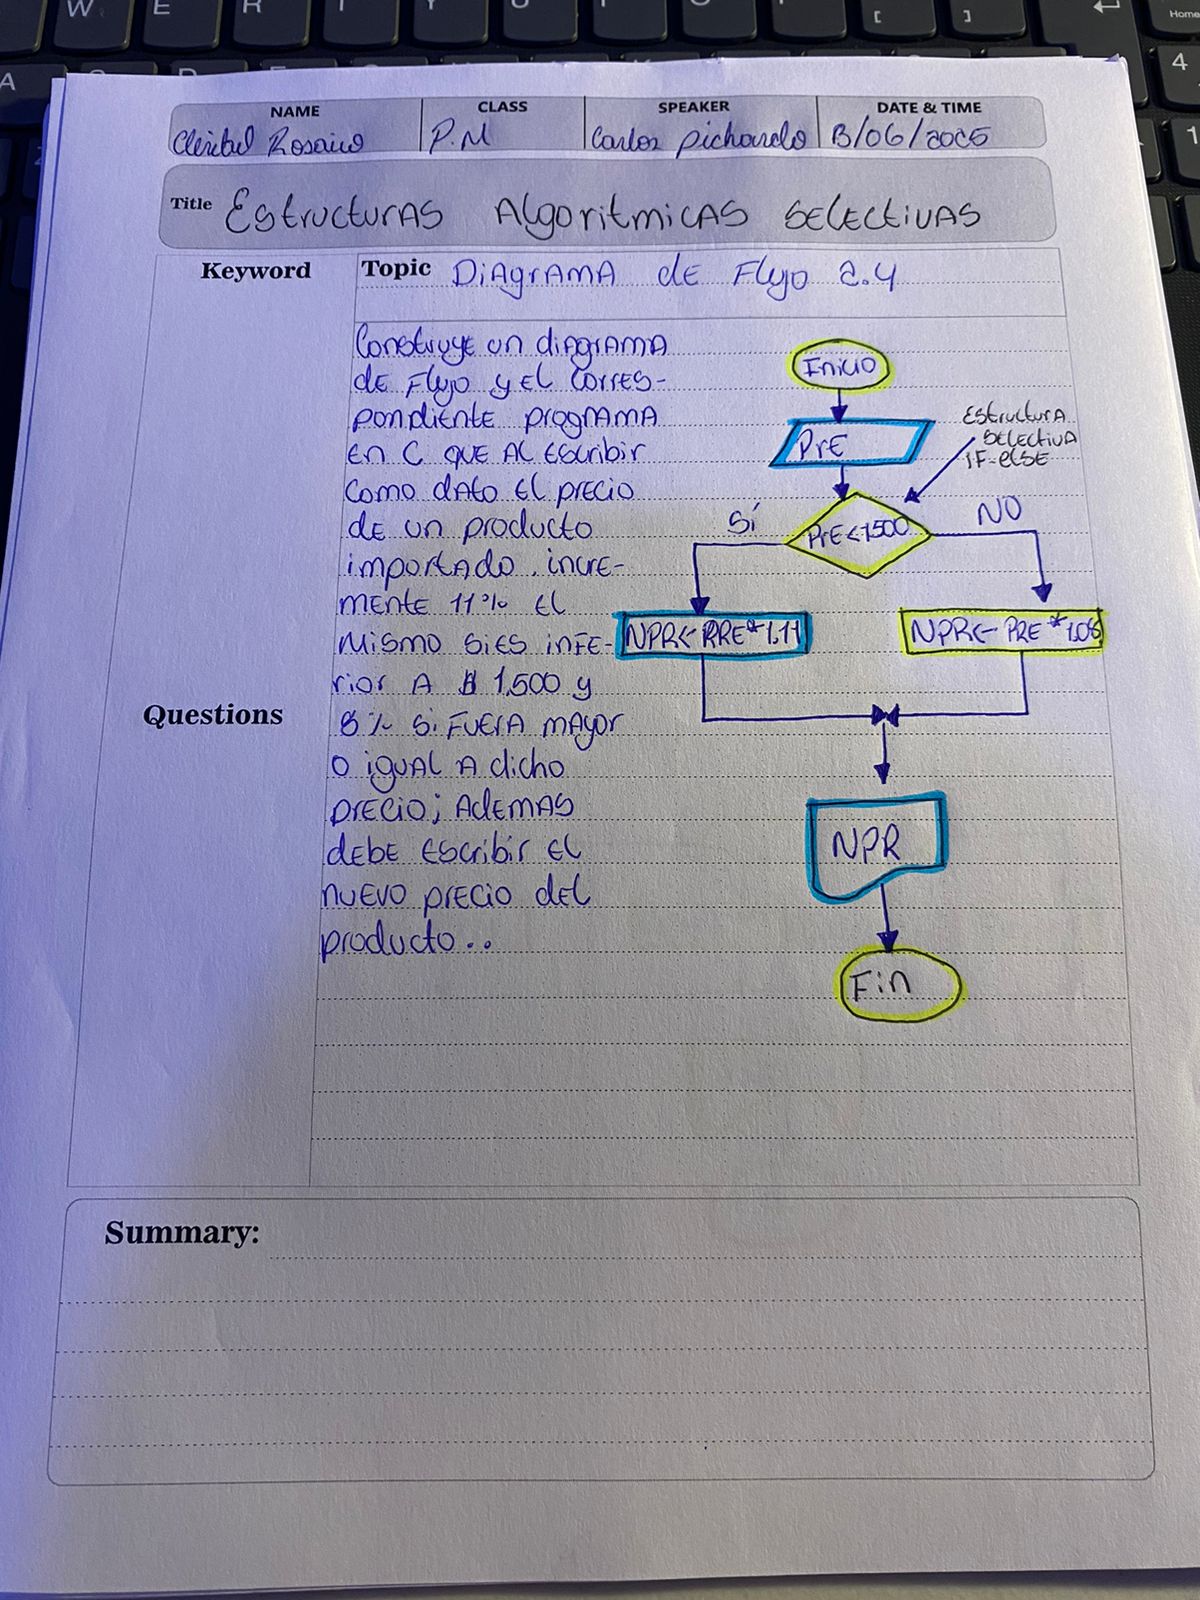 NAME CLASS SPEAKER DATE & TIME
P.M Carlos Pichardo
Title Estructuras Algoritmicas Selectivas
Keyword
Topic Diagrama de Flujo 2.4
Construye un diagrama
de Flujo y el corres-
pondiente programa
en C que al escribir
como dato el precio
de un producto
importado, incre-
mente 11% el
mismo si es infe-
rior a $ 1,500 y
8% si fuera mayor
o igual a dicho
precio; Ademas
debe escribir el
nuevo precio del
producto..
Questions
Inicio
PRE
Estructura
selectiva
IF-else
PRE<1500
Sí
NO
NPR<-PRE*1.11
NPR<-PRE*1.08
NPR
Fin
Summary:
Home